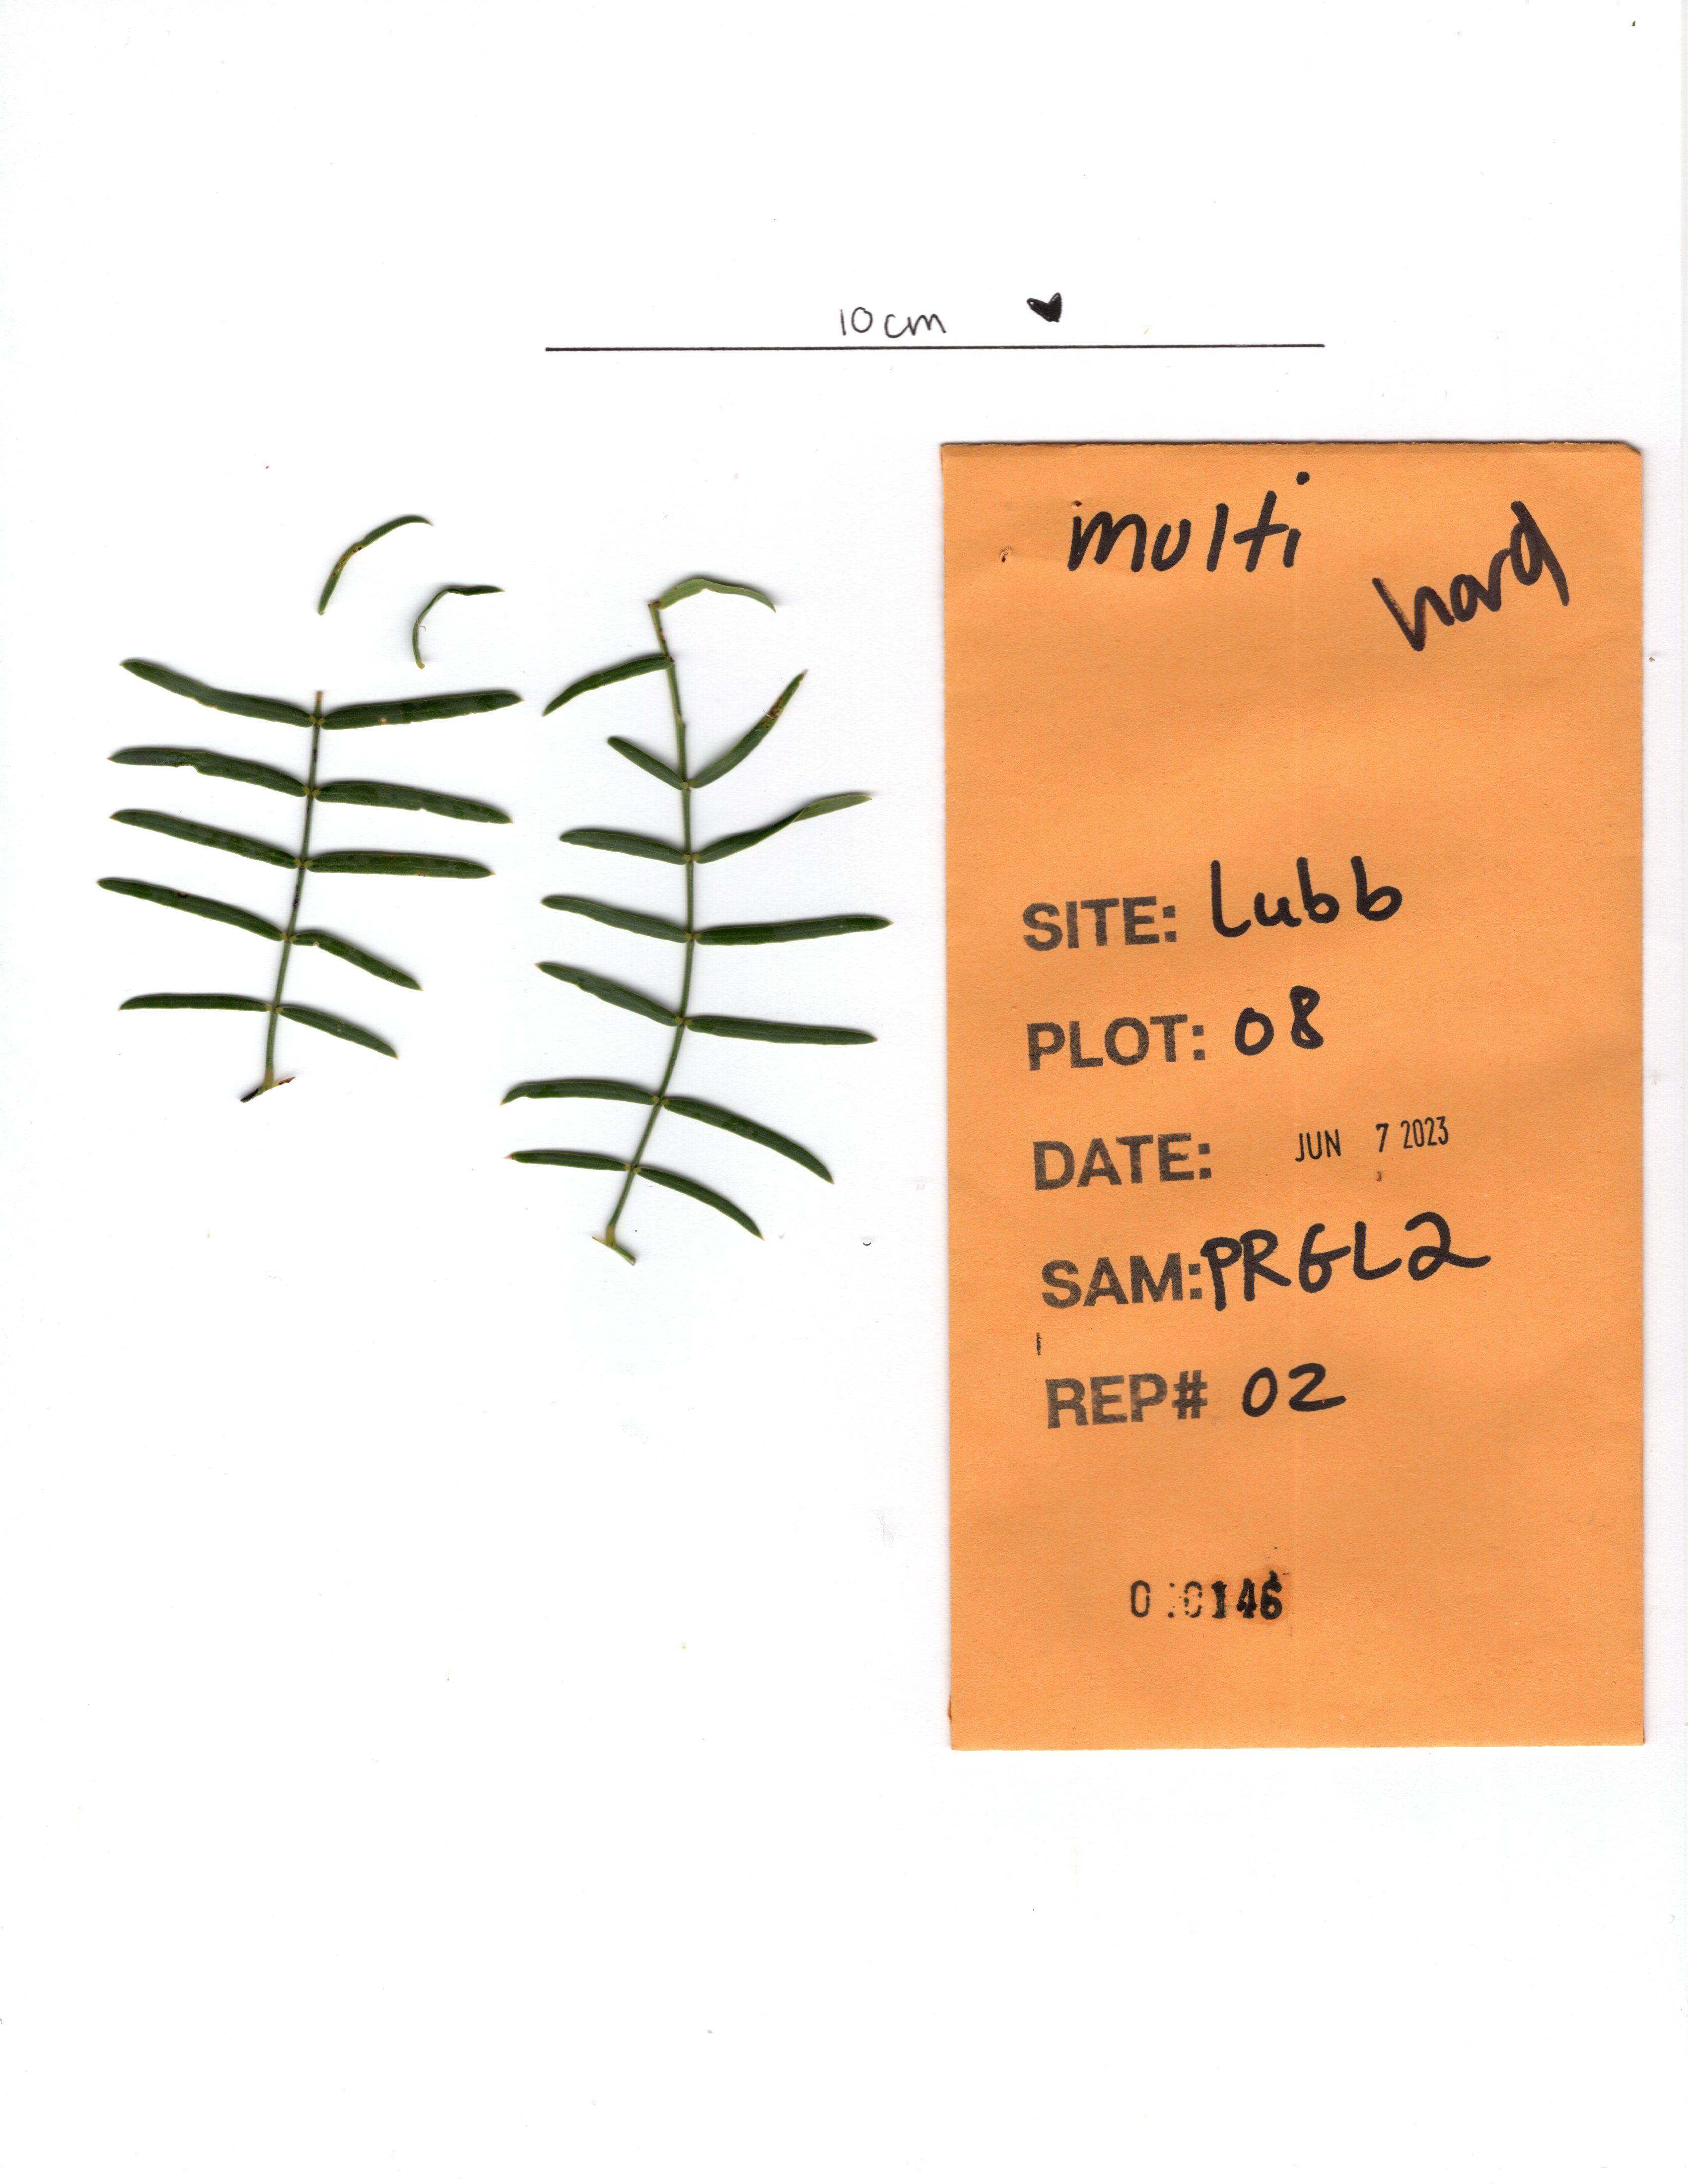 10cm
multi
hard
SITE: Lubb
PLOT: 08
DATE: JUN 7 2023
SAM: PRGL2
REP# 02